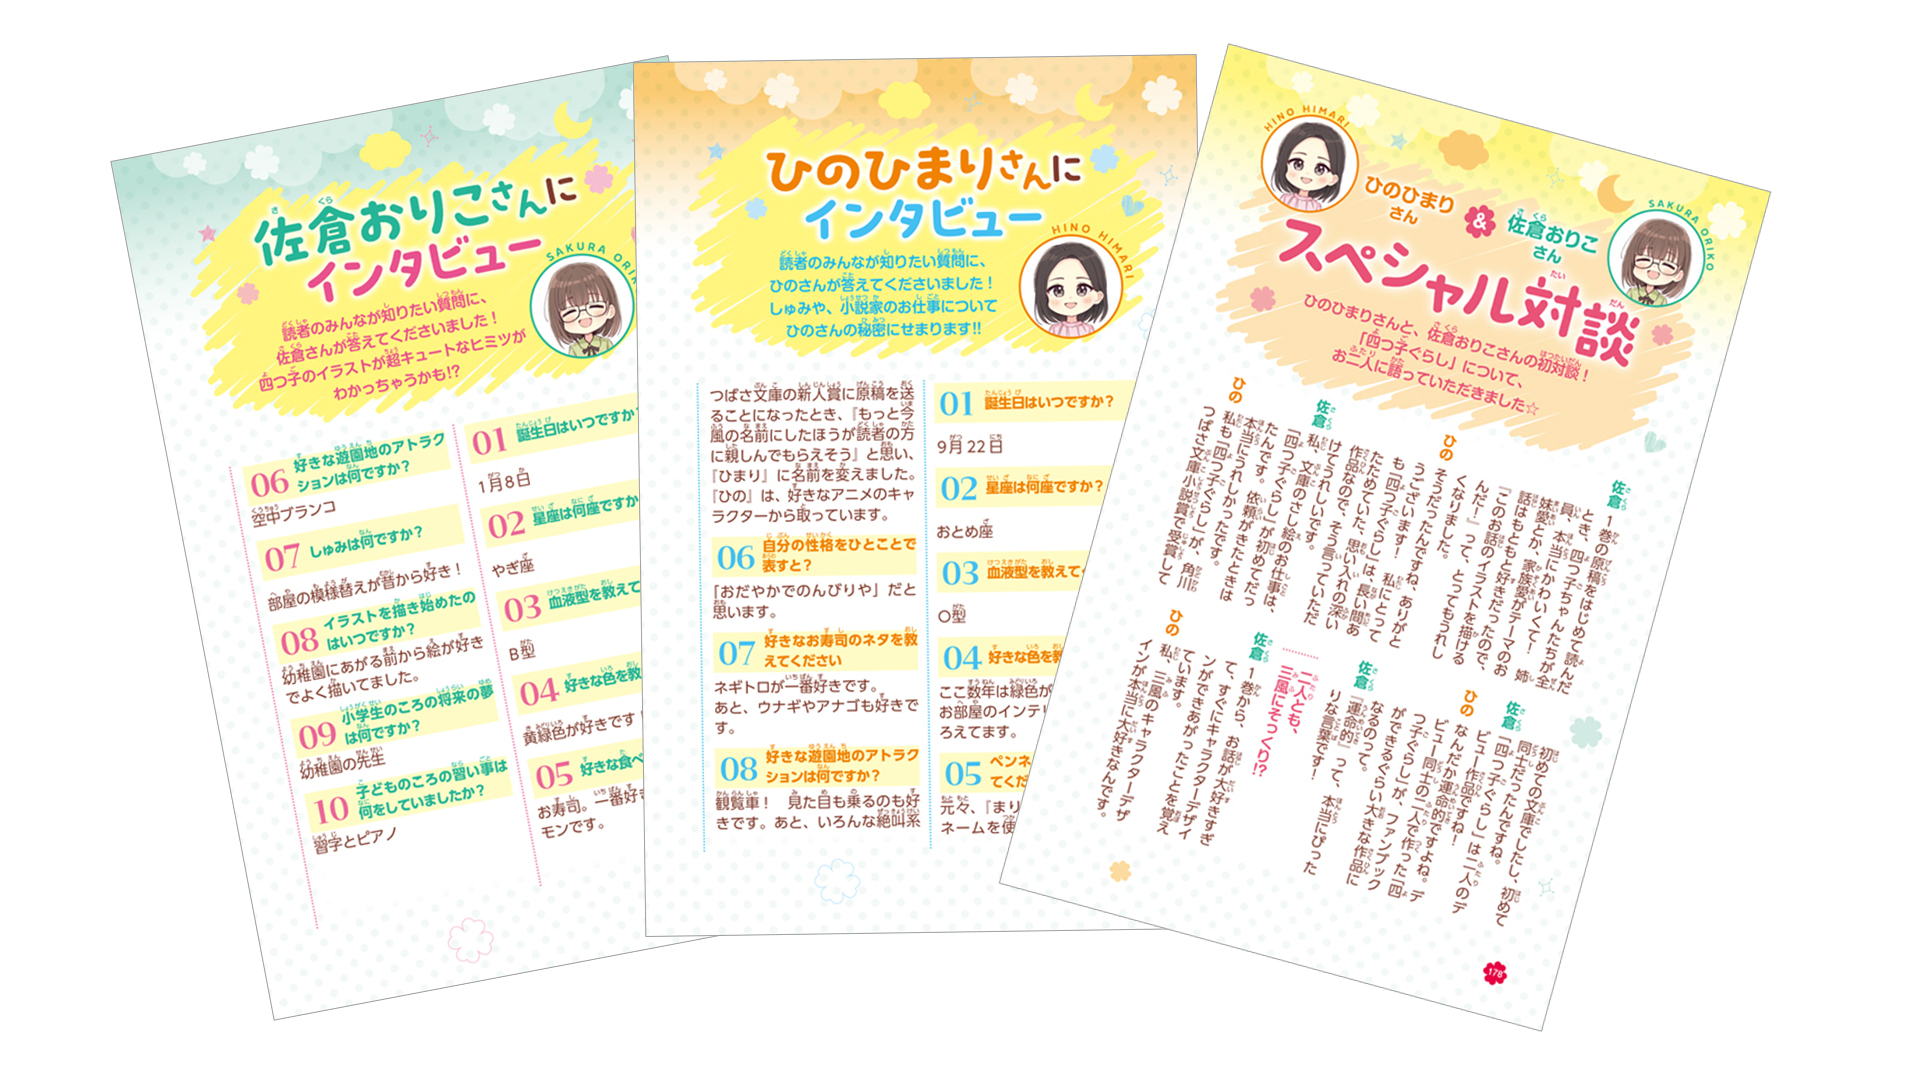 佐倉おりこさんに
インタビュー
SAKURA ORI
読者のみんなが知りたい質問に、
佐倉さんが答えてくださいました！
四つ子のイラストが超キュートなヒミツが
わかっちゃうかも!?
01 誕生日はいつですか？
1月8日
02 星座は何座ですか
やぎ座
03 血液型を教えて
B型
04 好きな色を教
黄緑色が好きです！
05 好きな食べ
お寿司。一番好き
モンです。
06 好きな遊園地のアトラク
ションは何ですか？
空中ブランコ
07 しゅみは何ですか？
部屋の模様替えが昔から好き！
08 イラストを描き始めたの
はいつですか？
幼稚園にあがる前から絵が好き
でよく描いてました。
09 小学生のころの将来の夢
は何ですか？
幼稚園の先生
10 子どものころの習い事は
何をしていましたか？
習字とピアノ
ひのひまりさんに
インタビュー
HINO HIMARI
読者のみんなが知りたい質問に、
ひのさんが答えてくださいました！
しゅみや、小説家のお仕事について
ひのさんの秘密にせまります!!
01 誕生日はいつですか？
9月22日
02 星座は何座ですか？
おとめ座
03 血液型を教えて
O型
04 好きな色を教
ここ数年は緑色が
お部屋のインテリ
ろえてます。
05 ペンネ
てくだ
元々、『まり
ネームを使
つばさ文庫の新人賞に原稿を送
ることになったとき、『もっと今
風の名前にしたほうが読者の方
に親しんでもらえそう』と思い、
『ひまり』に名前を変えました。
『ひの』は、好きなアニメのキャ
ラクターから取っています。
06 自分の性格をひとことで
表すと？
「おだやかでのんびりや」だと
思います。
07 好きなお寿司のネタを教
えてください
ネギトロが一番好きです。
あと、ウナギやアナゴも好きで
す。
08 好きな遊園地のアトラク
ションは何ですか？
観覧車！　見た目も乗るのも好
きです。あと、いろんな絶叫系
HINO HIMARI
ひのひまり
さん
&
佐倉おりこ
さん
SAKURA ORIKO
スペシャル対談
ひのひまりさんと、佐倉おりこさんの初対談！
「四つ子ぐらし」について、
お二人に語っていただきました☆
佐倉　1巻の原稿をはじめて読んだ
とき、四つ子ちゃんたちが全
員、本当にかわいくて！　姉
妹愛とか、家族愛がテーマのお
話はもともと好きだったので、
『このお話のイラストを描ける
んだ！』って、とってもうれし
くなりました。
ひの　そうだったんですね、ありがと
うございます！　私にとって
も「四つ子ぐらし」は、長い間あ
たためていた、思い入れの深い
作品なので、そう言っていただ
けてうれしいです。
佐倉　私、文庫のさし絵のお仕事は、
「四つ子ぐらし」が初めてだっ
たんです。依頼がきたときは
本当にうれしかったです。
ひの　私も「四つ子ぐらし」が、角川
つばさ文庫小説賞で受賞して
初めての文庫でしたし、初めて
同士だったんですね。
佐倉　「四つ子ぐらし」は二人のデ
ビュー作品ですね！
ひの　なんだか運命的ですよね。デ
ビュー同士の二人で作った「四
つ子ぐらし」が、ファンブック
ができるぐらい大きな作品に
なるのって。
佐倉　『運命的』って、本当にぴった
りな言葉です！
二人とも、
三風にそっくり!?
佐倉　1巻から、お話が大好きすぎ
て、すぐにキャラクターデザイ
ンができあがったことを覚え
ています。
ひの　私、三風のキャラクターデザ
インが本当に大好きなんです。
178